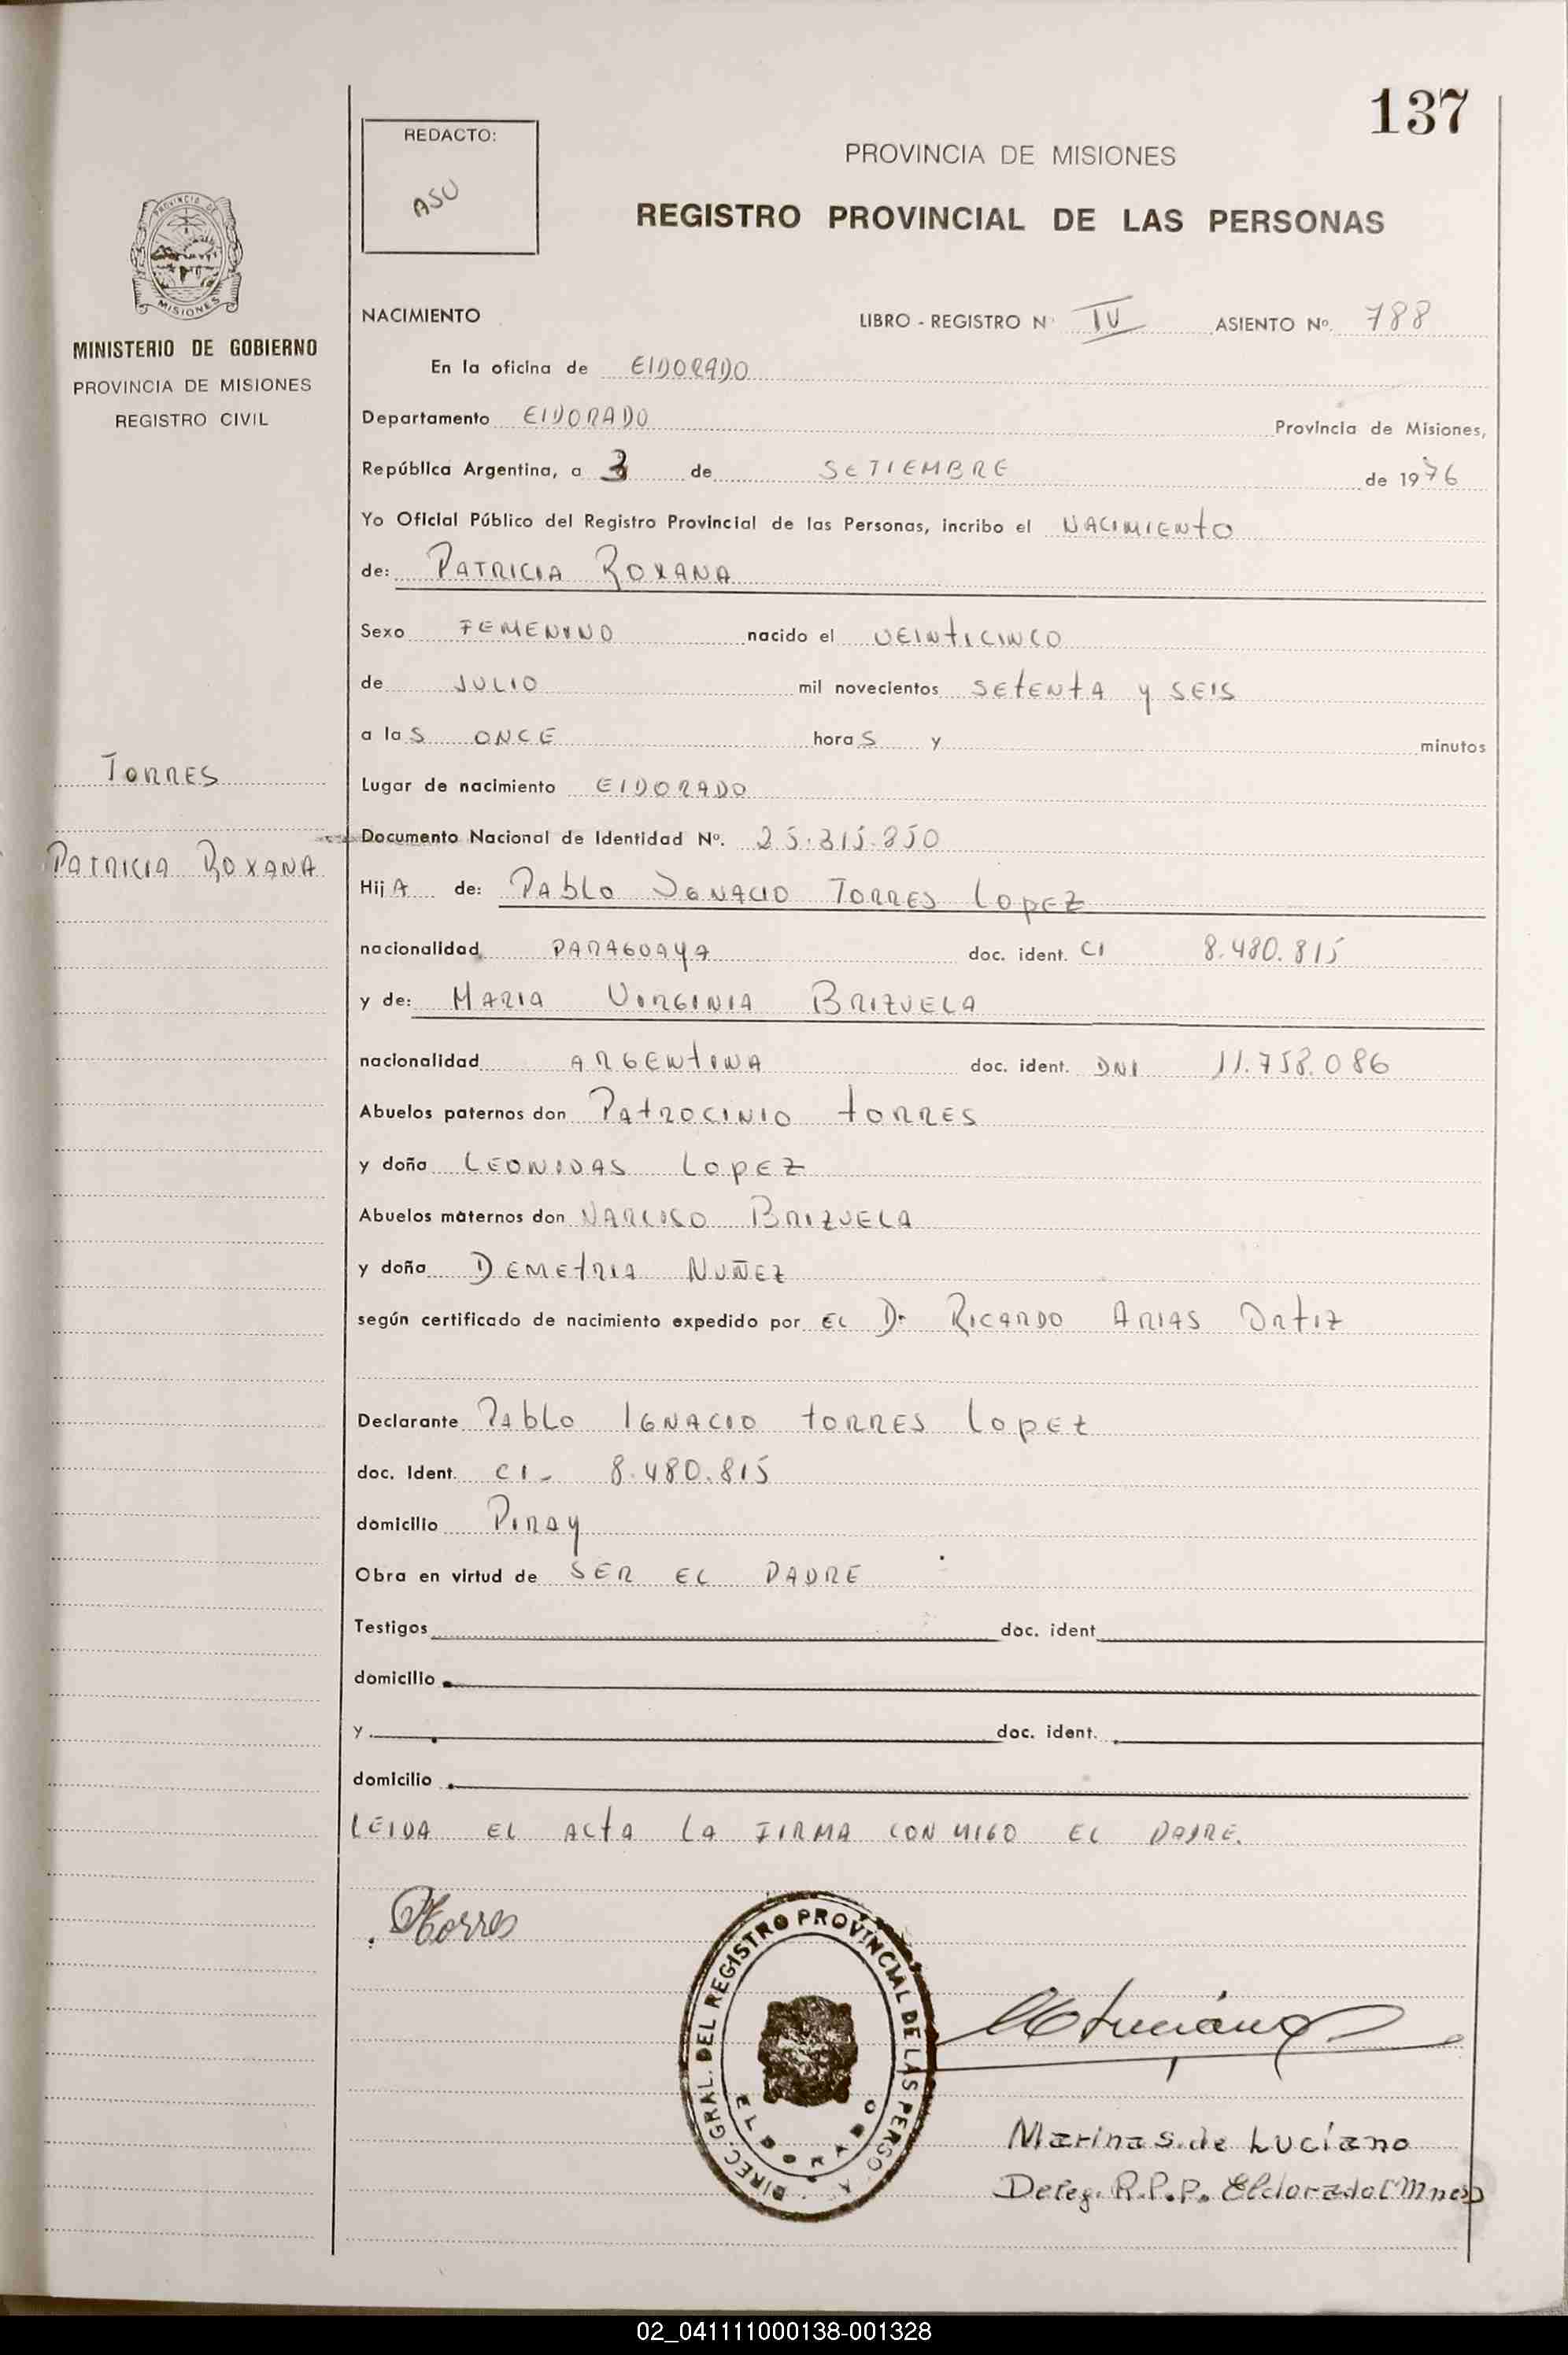 137
REDACTO:
ASU
PROVINCIA DE MISIONES
REGISTRO PROVINCIAL DE LAS PERSONAS
PROVINCIA DE
MISIONES
MINISTERIO DE GOBIERNO
PROVINCIA DE MISIONES
REGISTRO CIVIL
NACIMIENTO LIBRO - REGISTRO Nº IV ASIENTO Nº. 788
En la oficina de ElDORADO
Departamento ElDORADO Provincia de Misiones,
República Argentina, a 3 de SETIEMBRE de 1976
Yo Oficial Público del Registro Provincial de las Personas, incribo el NACIMIENtO
de: PATRICIA ROXANA
Sexo FEMENINO nacido el VEINtICINCO
de JULIO mil novecientos SEtENtA y SEIS
a las ONCE horas y minutos
TORRES
PATRICIA ROXANA
Lugar de nacimiento ElDORADO
Documento Nacional de Identidad Nº. 25.315.850
HijA de: PAbLo IGNACIO TORRES LopEZ
nacionalidad PARAGUAYA doc. ident. CI 8.480.815
y de: MARIA VIRGINIA BRIZUELA
nacionalidad ARGENtINA doc. ident. DNI 11.758.086
Abuelos paternos don PAtROCINIO tORRES
y doña LEONIDAS LopEZ
Abuelos maternos don NARCISO BRIZUELA
y doña DEMEtRIA NUÑEZ
según certificado de nacimiento expedido por EL Dr RICARDO ARIAS ORtIZ
Declarante PAbLo IGNACIO tORRES LopEZ
doc. Ident. CI - 8.480.815
domicilio PIRAY
Obra en virtud de SER EL PADRE
Testigos doc. ident
domicilio
y doc. ident.
domicilio
LEIDA EL ACtA LA FIRMA CONMIGO EL PADRE.
PTorres
DIREC. GRAL. DEL REGISTRO PROVINCIAL DE LAS PERSO
ELDORADO
Marina S. de Luciano
Deleg. R.P.P. Eldorado (Mnes)
02_041111000138-001328